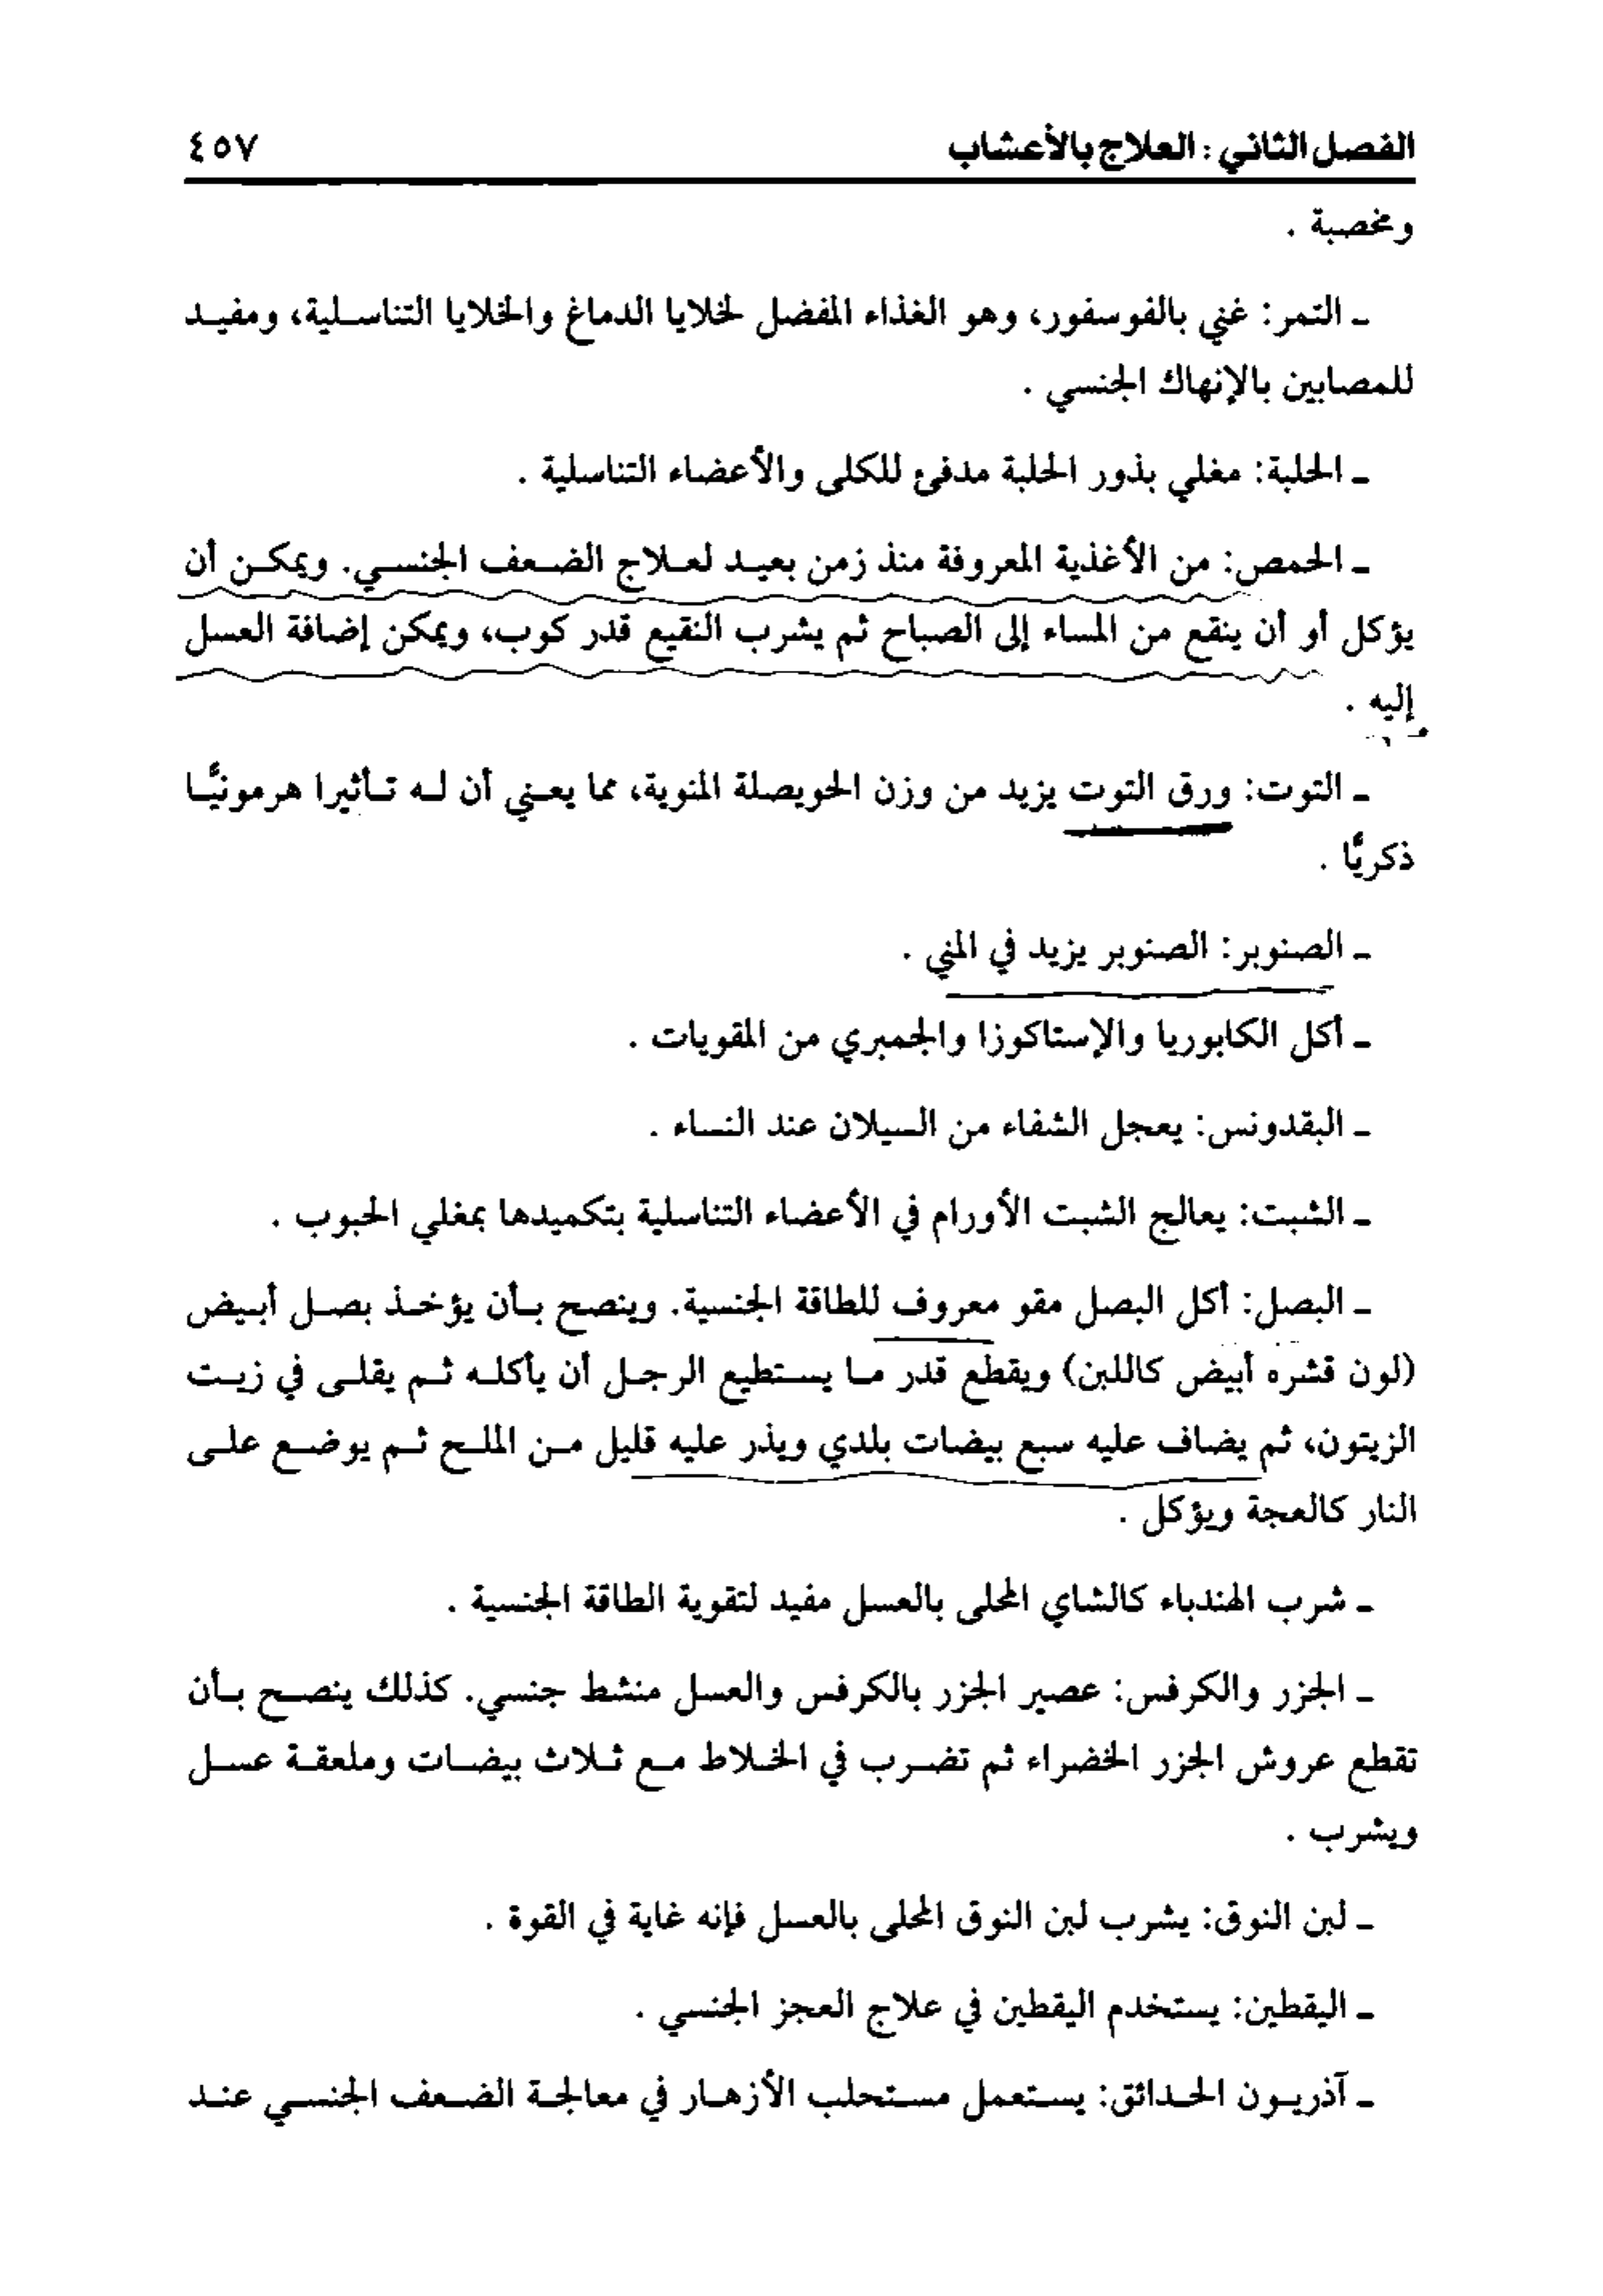 الفصل الثاني : العلاج بالأعشاب ٤٥٧
ومخصبة .
ـ التمر: غني بالفوسفور، وهو الغذاء المفضل لخلايا الدماغ والخلايا التناسلية، ومفيد
للمصابين بالإنهاك الجنسي .
ـ الحلبة: مغلي بذور الحلبة مدفئ للكلى والأعضاء التناسلية .
ـ الحمص: من الأغذية المعروفة منذ زمن بعيد لعلاج الضعف الجنسي. ويمكن أن
يؤكل أو أن ينقع من المساء إلى الصباح ثم يشرب النقيع قدر كوب، ويمكن إضافة العسل
إليه .
ـ التوت: ورق التوت يزيد من وزن الحويصلة المنوية، مما يعني أن له تأثيرا هرمونيًّا
ذكريًّا .
ـ الصنوبر: الصنوبر يزيد في المني .
ـ أكل الكابوريا والإستاكوزا والجمبري من المقويات .
ـ البقدونس: يعجل الشفاء من السيلان عند النساء .
ـ الشبت: يعالج الشبت الأورام في الأعضاء التناسلية بتكميدها بمغلي الحبوب .
ـ البصل: أكل البصل مقو معروف للطاقة الجنسية. وينصح بأن يؤخذ بصل أبيض
(لون قشره أبيض كاللبن) ويقطع قدر ما يستطيع الرجل أن يأكله ثم يقلى في زيت
الزيتون، ثم يضاف عليه سبع بيضات بلدي ويذر عليه قليل من الملح ثم يوضع على
النار كالعجة ويؤكل .
ـ شرب الهندباء كالشاي المحلى بالعسل مفيد لتقوية الطاقة الجنسية .
ـ الجزر والكرفس: عصير الجزر بالكرفس والعسل منشط جنسي. كذلك ينصح بأن
تقطع عروش الجزر الخضراء ثم تضرب في الخلاط مع ثلاث بيضات وملعقة عسل
ويشرب .
ـ لبن النوق: يشرب لبن النوق المحلى بالعسل فإنه غاية في القوة .
ـ اليقطين: يستخدم اليقطين في علاج العجز الجنسي .
ـ آذريون الحدائق: يستعمل مستحلب الأزهار في معالجة الضعف الجنسي عند